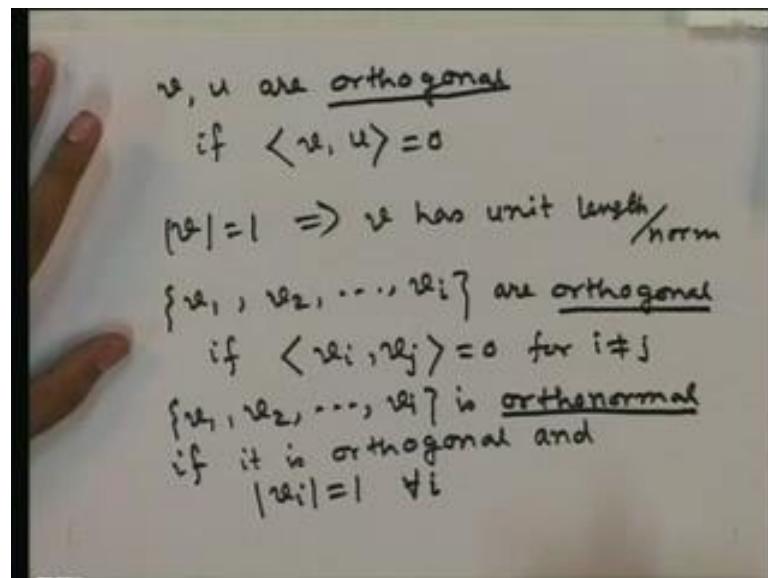 v, u are orthogonal
if <v, u> = 0
|v| = 1 => v has unit length/norm
{v₁, v₂, ..., vᵢ} are orthogonal
if <vᵢ, vⱼ> = 0 for i ≠ j
{v₁, v₂, ..., vᵢ} is orthonormal
if it is orthogonal and
|vᵢ| = 1 ∀i